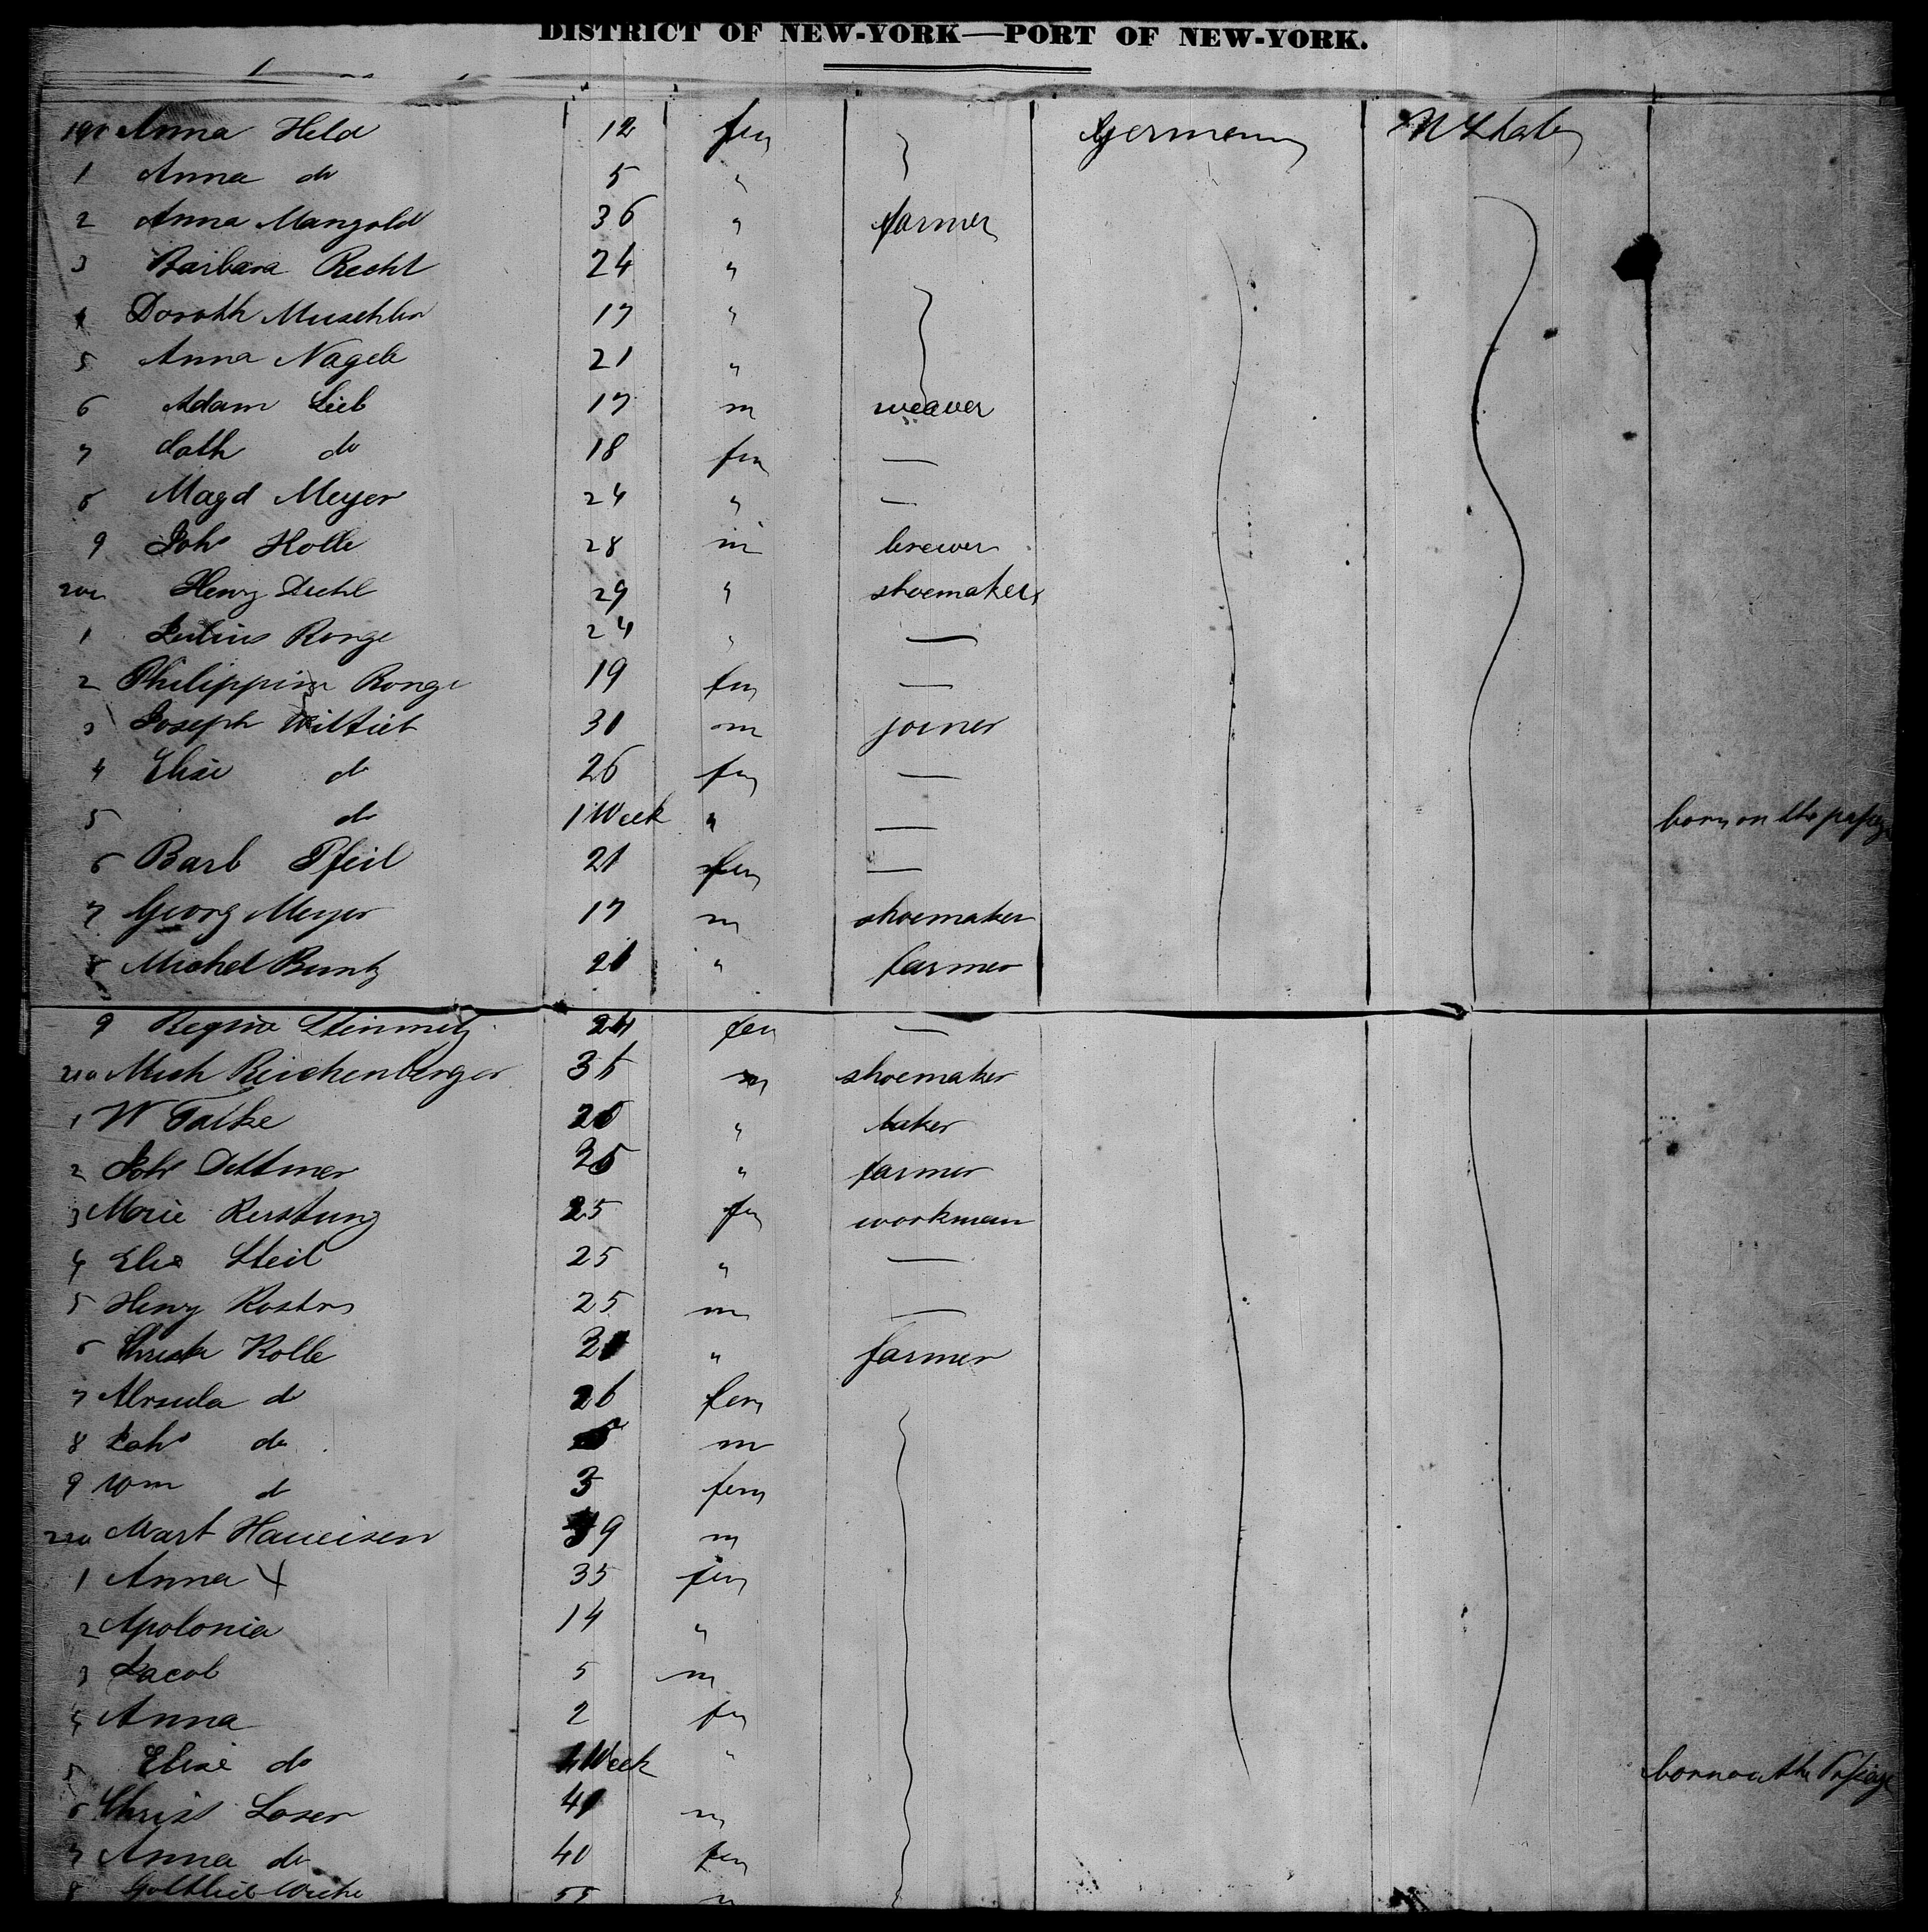 DISTRICT OF NEW-YORK—PORT OF NEW-YORK.
190 Anna Held 12 fem Germany
1 Anna do 5 "
2 Anna Mangold 36 " farmer
3 Barbara Recht 24 "
4 Doroth 17 "
5 Anna Nagele 21 "
6 Adam Lieb 17 m weaver
7 Cath do 18 fem —
8 Magd Meyer 24 " —
9 Johs Holle 28 m brewer
200 Henry Diehl 29 " shoemaker
1 Julius Ronge 24 " —
2 Philippine Ronge 19 fem —
3 Joseph Wittieb 31 m joiner
4 Elise do 26 fem —
5 do 1 Week " — born on the passage
6 Barb Pfeil 21 fem —
7 Georg Meyer 17 m shoemaker
8 Michel Buntz 21 " farmer
9 Regina Steinmetz 24 fem —
210 Mich Reichenberger m shoemaker
1 W Falke " baker
2 Joh Dettmer 35 " farmer
3 Marie Kerstung 25 fem workman
4 Elis Steil 25 " —
5 Henry 25 m —
6 Kolle " farmer
7 Ursula do 26 fem
8 Johs do m
9 Wm do 3 fem
220 Mart Haueisen 39 m
1 Anna 35 fem
2 Apolonia 14 "
3 Jacob 5 m
4 Anna 2 fem
5 Elise do Week " born on the Passage
6 Christ Loser m
7 Anna do 40 fem
8 Gottlieb 55 m